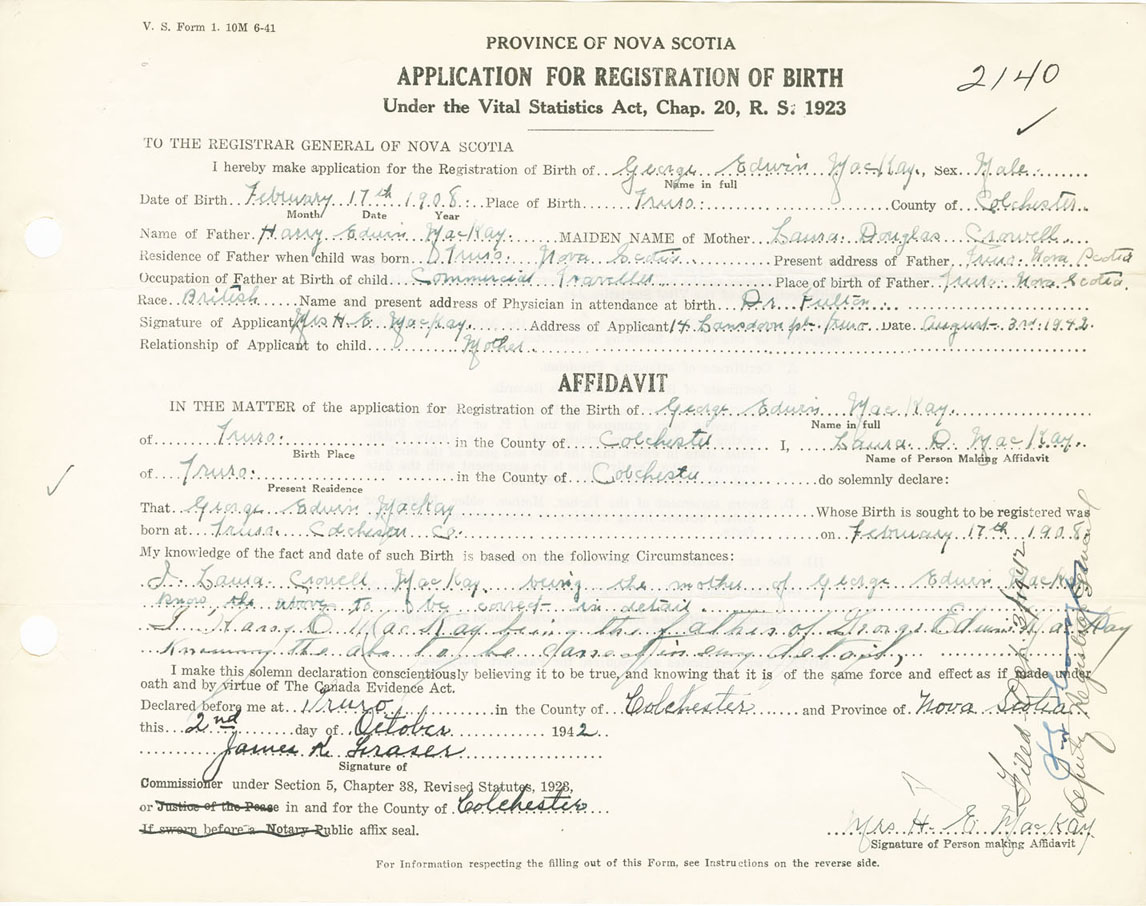 V. S. Form 1. 10M 6-41
PROVINCE OF NOVA SCOTIA
APPLICATION FOR REGISTRATION OF BIRTH
2140
Under the Vital Statistics Act, Chap. 20, R. S. 1923
TO THE REGISTRAR GENERAL OF NOVA SCOTIA
I hereby make application for the Registration of Birth of George Edwin MacKay, Sex Male
Name in full
Date of Birth February 17th 1908 Place of Birth Truro County of Colchester
Month Date Year
Name of Father Harry Edwin MacKay MAIDEN NAME of Mother Laura Douglas Crowell
Residence of Father when child was born Truro Nova Scotia Present address of Father Truro Nova Scotia
Occupation of Father at Birth of child Commercial Traveller Place of birth of Father Truro Nova Scotia
Race British Name and present address of Physician in attendance at birth Dr. Fulton
Signature of Applicant Mrs H. E. MacKay Address of Applicant 14 Truro Date August 3rd 1942
Relationship of Applicant to child Mother
AFFIDAVIT
IN THE MATTER of the application for Registration of the Birth of George Edwin MacKay
Name in full
of Truro in the County of Colchester I, Laura D. MacKay
Birth Place Name of Person Making Affidavit
of Truro in the County of Colchester do solemnly declare:
Present Residence
That George Edwin MacKay Whose Birth is sought to be registered was
born at Truro Colchester Co. on February 17th 1908
My knowledge of the fact and date of such Birth is based on the following Circumstances:
I Laura Crowell MacKay being the mother of George Edwin MacKay
know the above to be correct in detail
I Harry E MacKay being the father of George Edwin MacKay
Knowing the to be correct in every detail,
I make this solemn declaration conscientiously believing it to be true, and knowing that it is of the same force and effect as if made under
oath and by virtue of The Canada Evidence Act.
Declared before me at Truro in the County of Colchester and Province of Nova Scotia
this 2nd day of October 1942
James K. Fraser
Signature of
Commissioner under Section 5, Chapter 38, Revised Statutes, 1923,
or Justice of the Peace in and for the County of Colchester
If sworn before a Notary Public affix seal.
Mrs H. E. MacKay
Signature of Person making Affidavit
For Information respecting the filling out of this Form, see Instructions on the reverse side.
Filed Oct
Deputy Registrar General